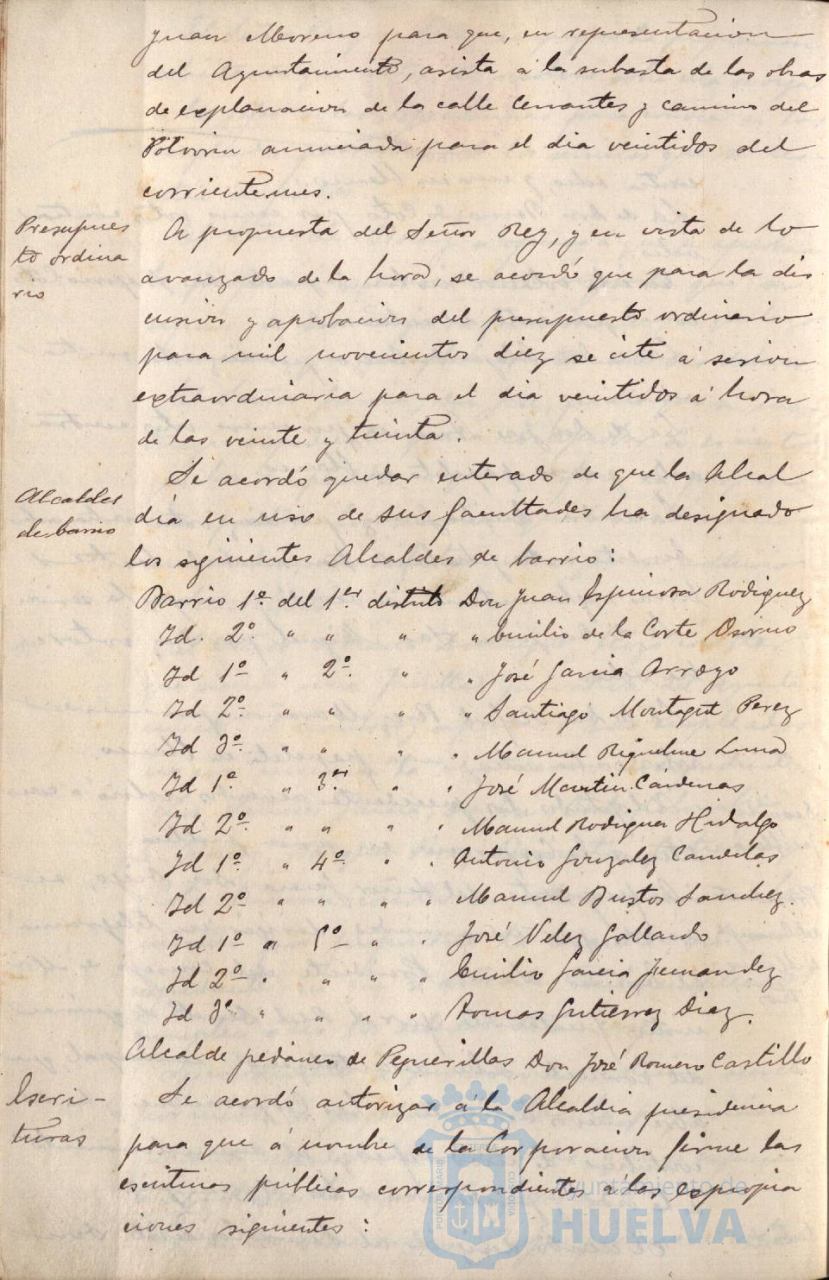 Juan Moreno para que, en representacion
del Ayuntamiento, asista á la subasta de las obras
de explanacion de la calle Cervantes y camino del
Polvorin anunciada para el dia veintidos del
corriente mes.
Presupues
to ordina
rio
A propuesta del Señor Rey, y en vista de lo
avanzado de la hora, se acordó que para la dis
cusion y aprobacion del presupuesto ordinario
para mil novecientos diez se cite á sesion
extraordinaria para el dia veintidos á hora
de las veinte y treinta.
Alcaldes
de barrio
Se acordó quedar enterado de que la Alcal
día en uso de sus facultades ha designado
los siguientes Alcaldes de barrio:
Barrio 1º. del 1er distrito Don Juan Espinosa Rodriguez
Id. 2º. " " " " Emilio de la Corte Osorno
Id 1º " 2º. " " José Garcia Arroyo
Id 2º. " " " " Santiago Montagut Perez
Id 3º. " " " " Manuel Riquelme Luna
Id 1º. " 3er " " José Martin Cárdenas
Id 2º. " " " " Manuel Rodriguez Hidalgo
Id 1º. " 4º. " " Antonio Gonzalez Candelas
Id 2º " " " " Manuel Bustos Sanchez.
Id 1º " 5º " " José Velez Gallardo
Id 2º " " " " Emilio Garcia Fernandez
Id 3º. " " " " Tomas Gutierrez Diaz.
Alcalde pedáneo de Peguerillas Don José Romero Castillo
Escri-
turas
Se acordó autorizar á la Alcaldia presidencia
para que á nombre de la Corporacion firme las
escrituras públicas correspondientes á las expropia
ciones siguientes:
Ayuntamiento de
HUELVA